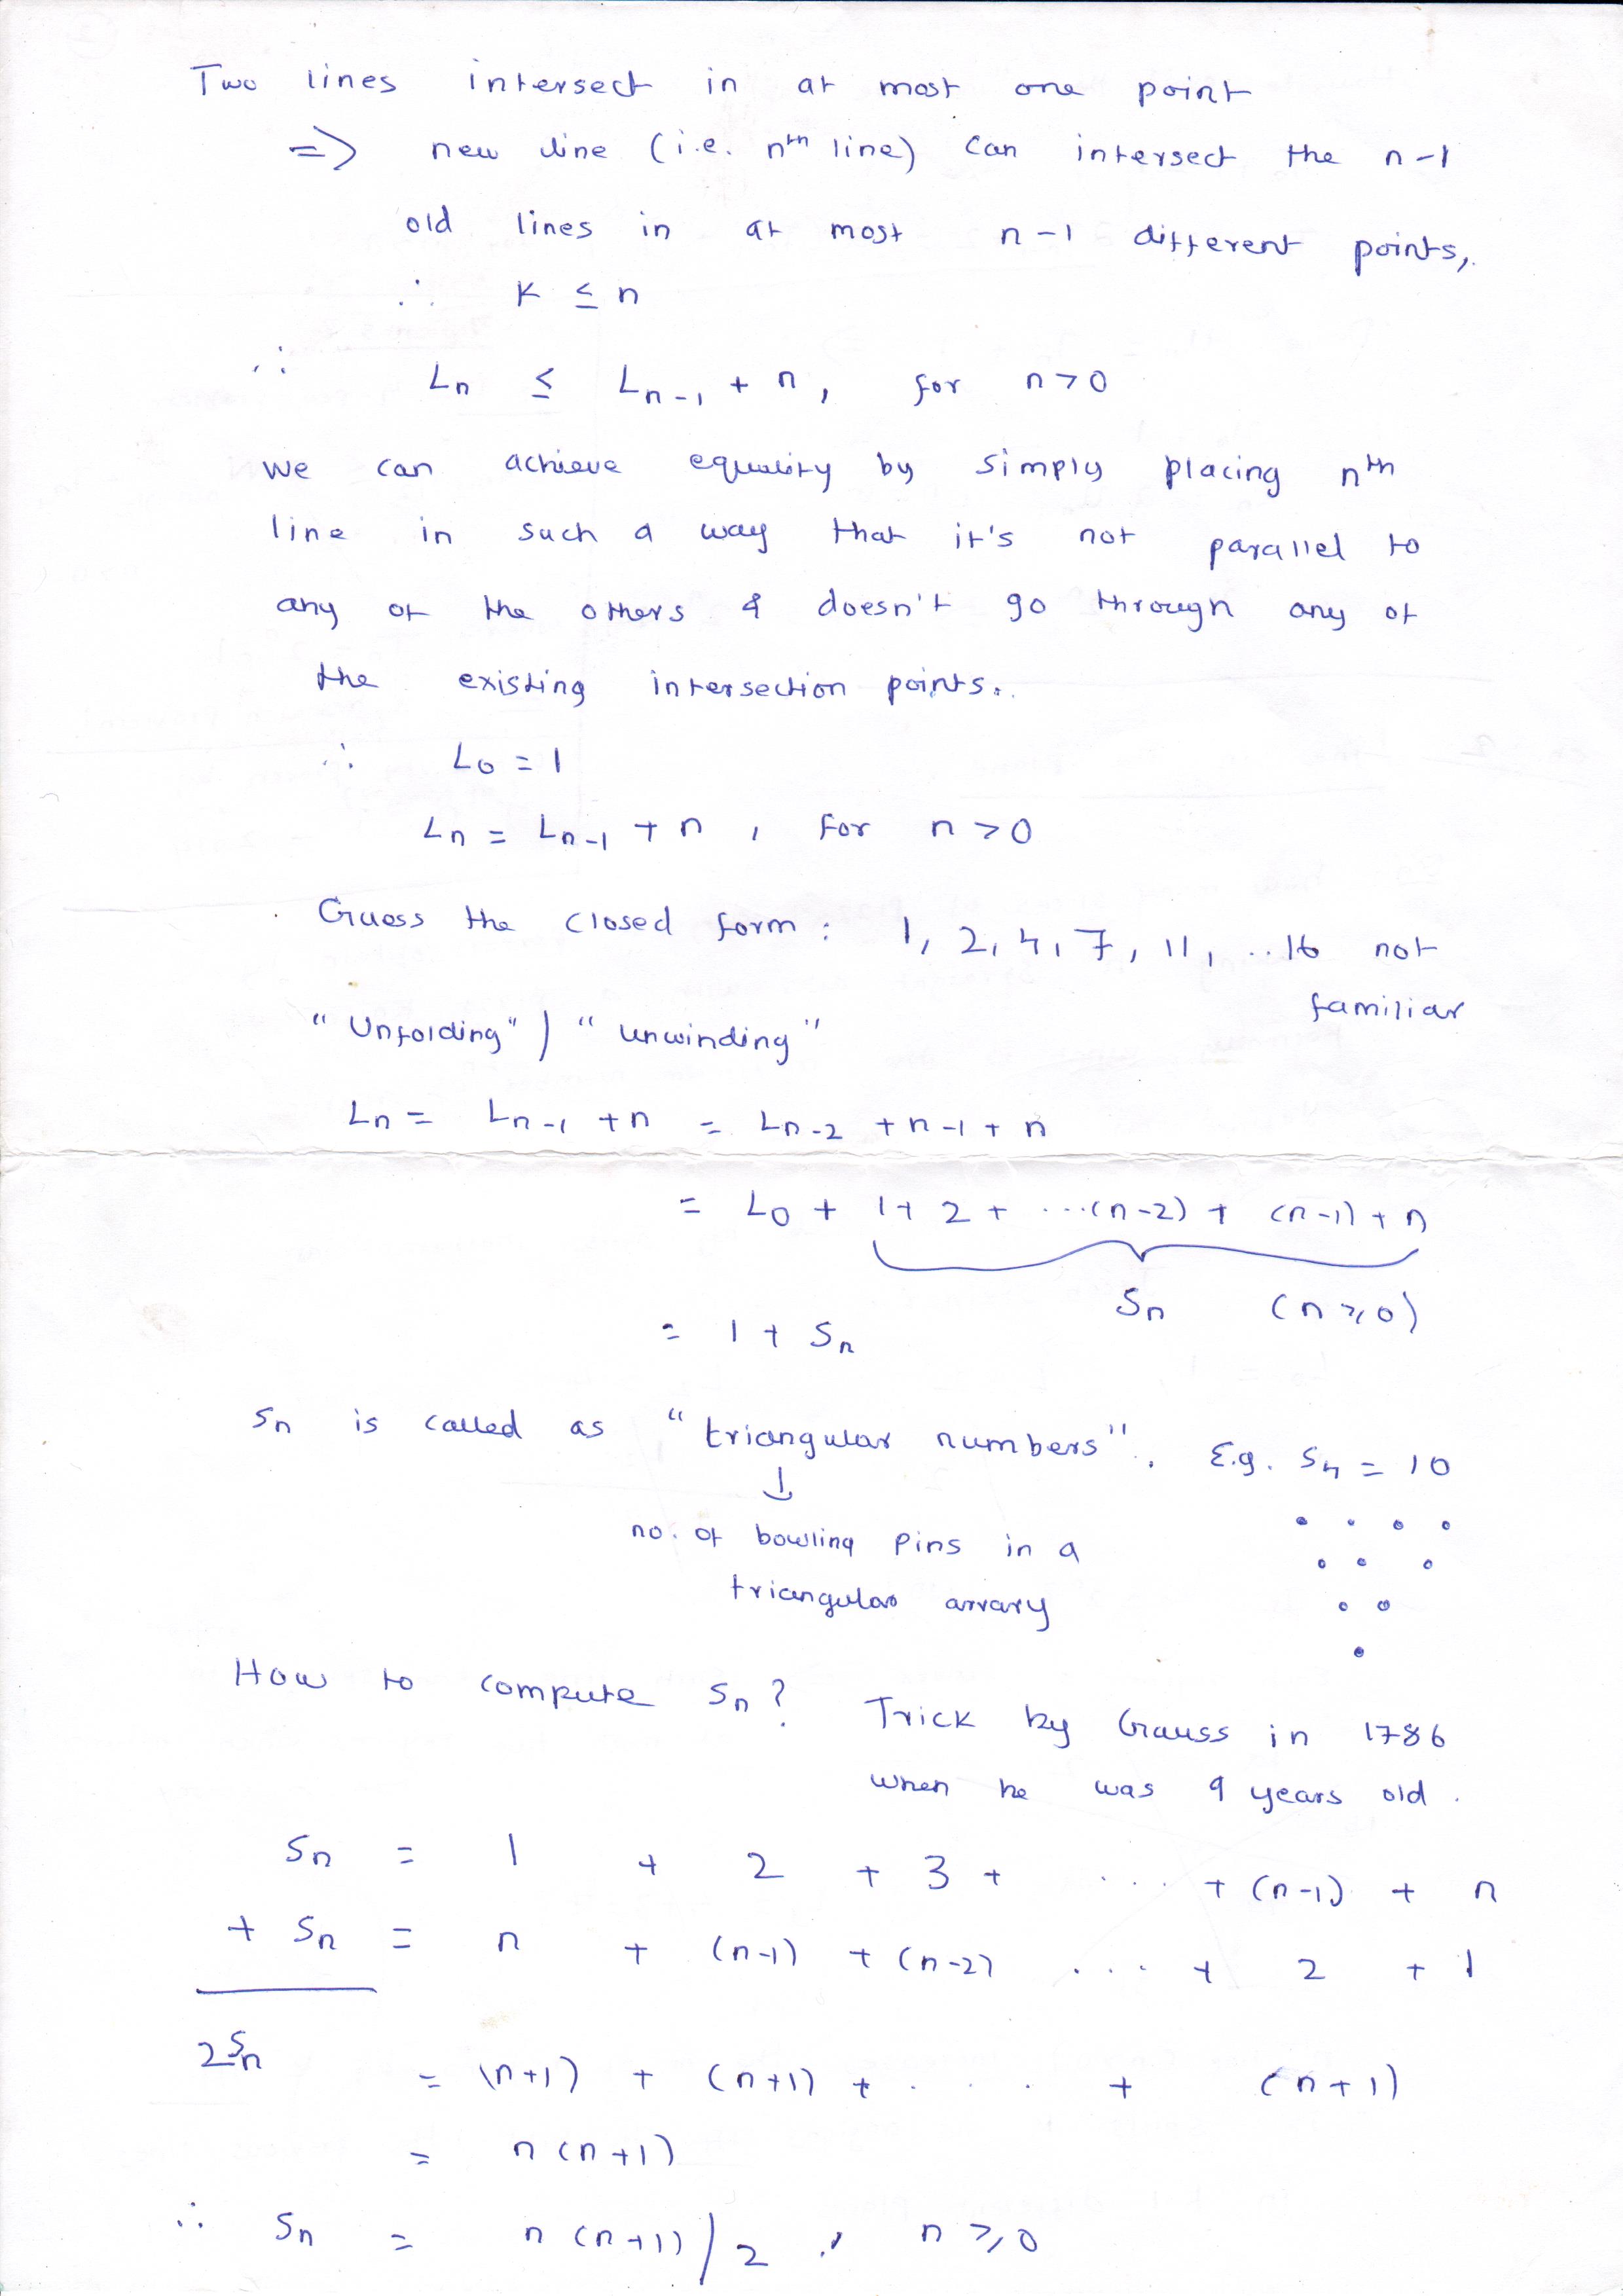 Two lines intersect in at most one point
=> new line (i.e. nth line) can intersect the n-1
old lines in at most n-1 different points,
∴ K ≤ n
∴ Ln ≤ Ln-1 + n, for n>0
we can achieve equality by simply placing nth
line in such a way that it's not parallel to
any of the others & doesn't go through any of
the existing intersection points.
∴ L0 = 1
Ln = Ln-1 + n, for n>0
Guess the closed form: 1, 2, 4, 7, 11, ..16 not
familiar
"Unfolding" / "unwinding"
Ln = Ln-1 + n = Ln-2 + n-1 + n
= L0 + 1+ 2 + ...(n-2) + (n-1) + n
Sn (n≥0)
= 1 + Sn
Sn is called as "triangular numbers". E.g. S4 = 10
↓
no. of bowling pins in a
triangular arrary
How to compute Sn? Trick by Gauss in 1786
when he was 9 years old.
Sn = 1 + 2 + 3 + ... + (n-1) + n
+ Sn = n + (n-1) + (n-2) ... + 2 + 1
2Sn
= (n+1) + (n+1) + ... + (n+1)
= n (n+1)
∴ Sn = n (n+1)/2, n ≥ 0